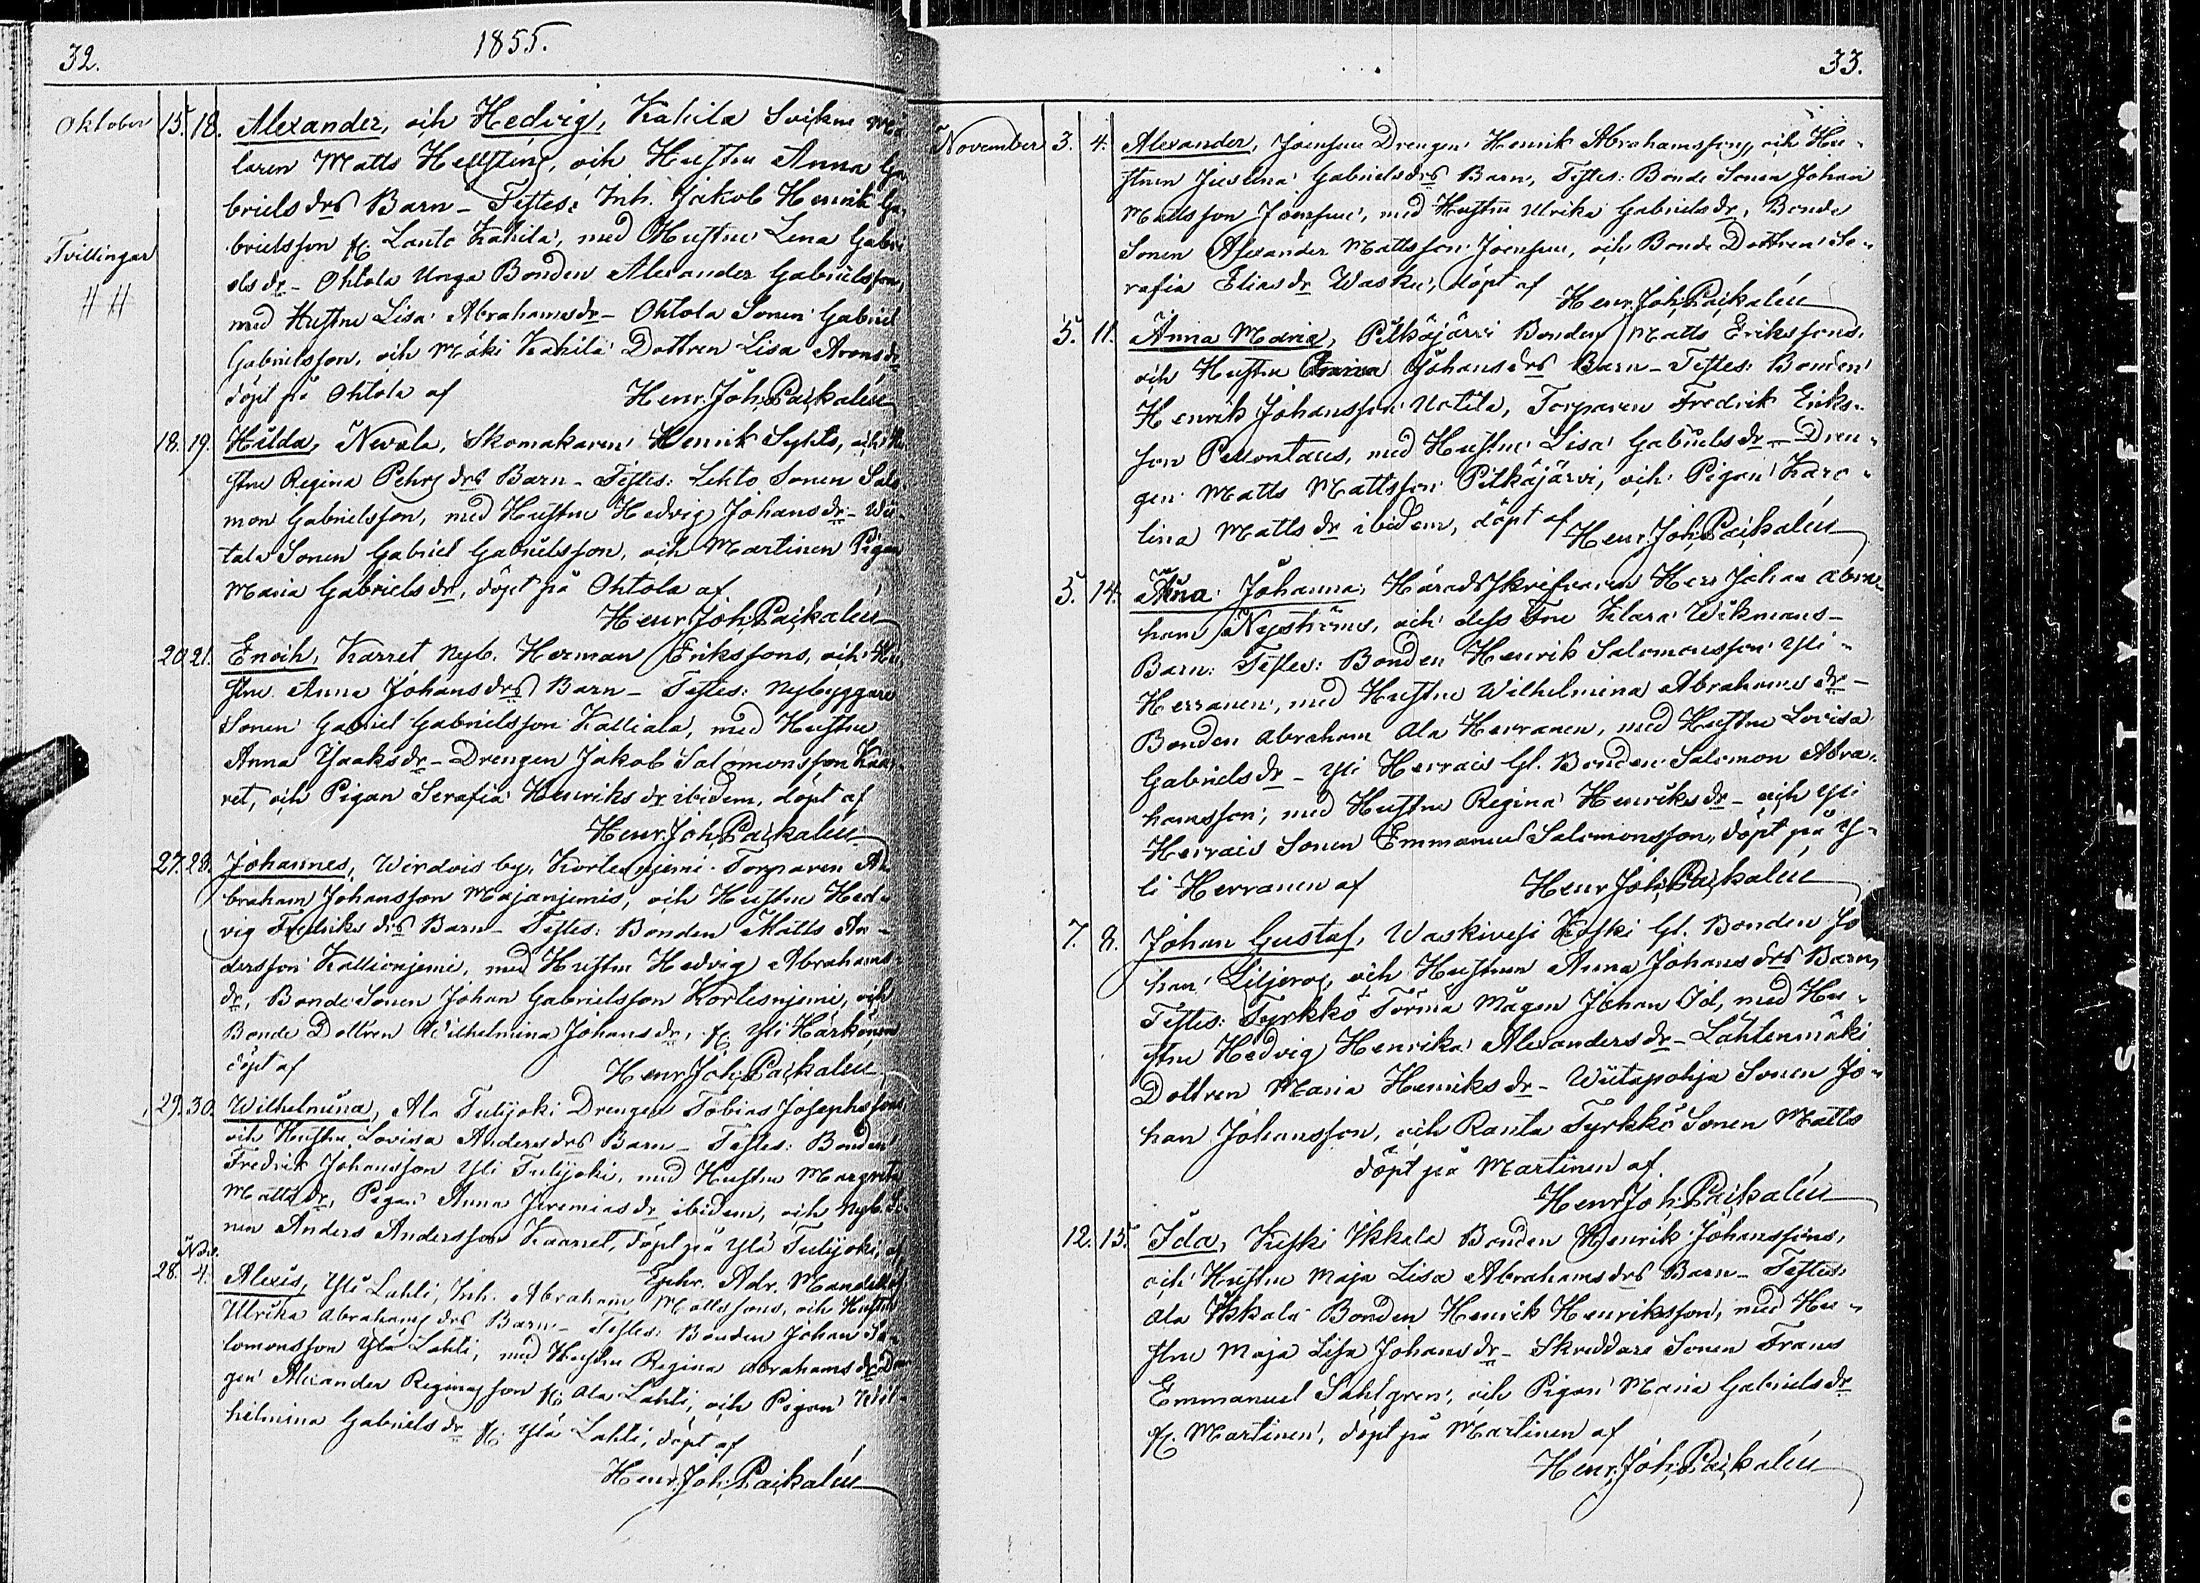 32.
1855.
Oktober 15. 18. Alexander, och Hedvig, Kahila Sockne Må
laren Matts Hellsténs, och Hustru Anna Ga
briels drs Barn – Testes: Inh. Jakob Henrik Ga-
brielsson fr. Lanto Kahila, med Hustru Lena Gabri
Tvillingar
els dr – Ohtola Unga Bonden Alexander Gabrielsson,
med Hustru Lisa Abrahams dr – Ohtola Sonen Gabriel
Gabrielsson, och Mäki Kahila Dottren Lisa Arons dr
döpt på Ohtola af Henr. Joh. Paikalén
18. 19. Hilda, Nevala, Skomakaren Henrik Syhts, och Hu
stru Regina Pehrs drs Barn – Testes: Lehto Sonen Salo
mon Gabrielsson, med Hustru Hedvig Johans dr – Wii
tala Sonen Gabriel Gabrielsson, och Martinen Pigan
Maria Gabriels dr, döpt på Ohtola af
Henr. Joh. Paikalén
20. 21. Enoch, Karret Nyb. Herman Erikssons, och Hu
stru Anna Johans drs Barn – Testes: Nybyggare
Sonen Gabriel Gabrielsson Kalliala, med Hustru
Anna Isaks dr – Drengen Jakob Salomonsson Kaar
ret, och Pigan Serafia Henriks dr ibidem, döpt af
Henr. Joh. Paikalén
27. 28. Johannes, Wirdois by, Kortesnjemi Torparen Ab
braham Johansson Majanjemis, och Hustru Hed-
vig Fredriks drs Barn – Testes: Bonden Matts An-
dersson Kallionjemi, med Hustru Hedvig Abrahams
dr, Bonde Sonen Johan Gabrielsson Kortesnjemi, och
Bonde Dottren Wilhelmina Johans dr, fr. Yli Härkönen
döpt af Henr. Joh. Paikalén
29. 30. Wilhelmina, Ala Tulijoki Drengen Tobias Josephssons
och Hustru Lovisa Anders drs Barn – Testes: Bonden
Fredrik Johansson Yli Tulijoki, med Hustru Margreta
Matts dr, Pigan Anna Jeremias dr ibidem, och Nyb. So-
nen Anders Andersson Kaarret, döpt på Yla Tulijoki, af
Ephr. Adr. Mandellöf
Nov.
28. 4. Alexis, Yli Lahti, Inh. Abraham Mattssons, och Hustru
Ulrika Abrahams drs Barn – Testes: Bonden Johan Sa-
lomonsson Yla Lahti, med Hustru Regina Abrahams dr Dren
gen Alexander Reginasson fr. Ala Lahti, och Pigan Wil-
helmina Gabriels dr fr. Yla Lahti, döpt af
Henr. Joh. Paikalén
33.
November 3. 4. Alexander, Joensuu Drengen Henrik Abrahamssons, och Hu-
strun Gabriels drs Barn, Testes: Bonde Sonen Johan
Mattsson Joensuu, med Hustru Ulrika Gabriels dr, Bonde
Sonen Alexander Mattsson Joensuu, och Bonde Dottren Se-
rafia Elias dr Wasku, döpt af Henr. Joh. Paikalén
5. 11. Anna Maria, Pitkäjärvi Bonden Matts Erikssons,
och Hustru Johans drs Barn – Testes: Bonden
Henrik Johansson Uotila, Torparen Fredrik Eriks-
son Peltontaus, med Hustru Lisa Gabriels dr – Dren-
gen Matts Mattsson Pitkäjärvi, och Pigan Karo-
lina Matts dr ibidem, döpt af Henr. Joh. Paikalén
5. 14. Alina Johanna, Häradsskrifvaren Herr Johan Abra-
ham Nyströms, och dess Fru Klara Wikmans –
Barn: Testes: Bonden Henrik Salomonsson Yli-
Herranen, med Hustru Wilhelmina Abrahams dr –
Bonden Abraham Ala Herranen, med Hustru Lovisa
Gabriels dr – Yli Herrais Gl. Bonden Salomon Abra-
hamsson, med Hustru Regina Henriks dr – och Yli
Herrais Sonen Emmanuel Salomonsson, döpt på Y-
li Herranen af Henr. Joh. Paikalén
7. 8. Johan Gustaf, Waskivesi Koski Gl. Bonden Jo
han Liljeros, och Hustrun Anna Johans drs Barn,
Testes: Tyrkkö Törmä Mågen Johan Isl, med Hu-
stru Hedvig Henrika Alexanders dr – Lahtenmäki
Dottren Maria Henriks dr – Wiitapohja Sonen Jo-
han Johansson, och Ranta Tyrkkö Sonen Matts
döpt på Martinen af
Henr. Joh. Paikalén
12. 15. Ida, Koski Ikkala Bonden Henrik Johanssons,
och Hustru Maja Lisa Abrahams drs Barn – Testes:
Ala Ikkala Bonden Henrik Henriksson, med Hu-
stru Maja Lisa Johans dr – Skreddare Sonen Frans
Emmanuel Sahlgren, och Pigan Maria Gabriels dr
fr. Martinen, döpt på Martinen af
Henr. Joh. Paikalén
KODAK SAFETY FILM